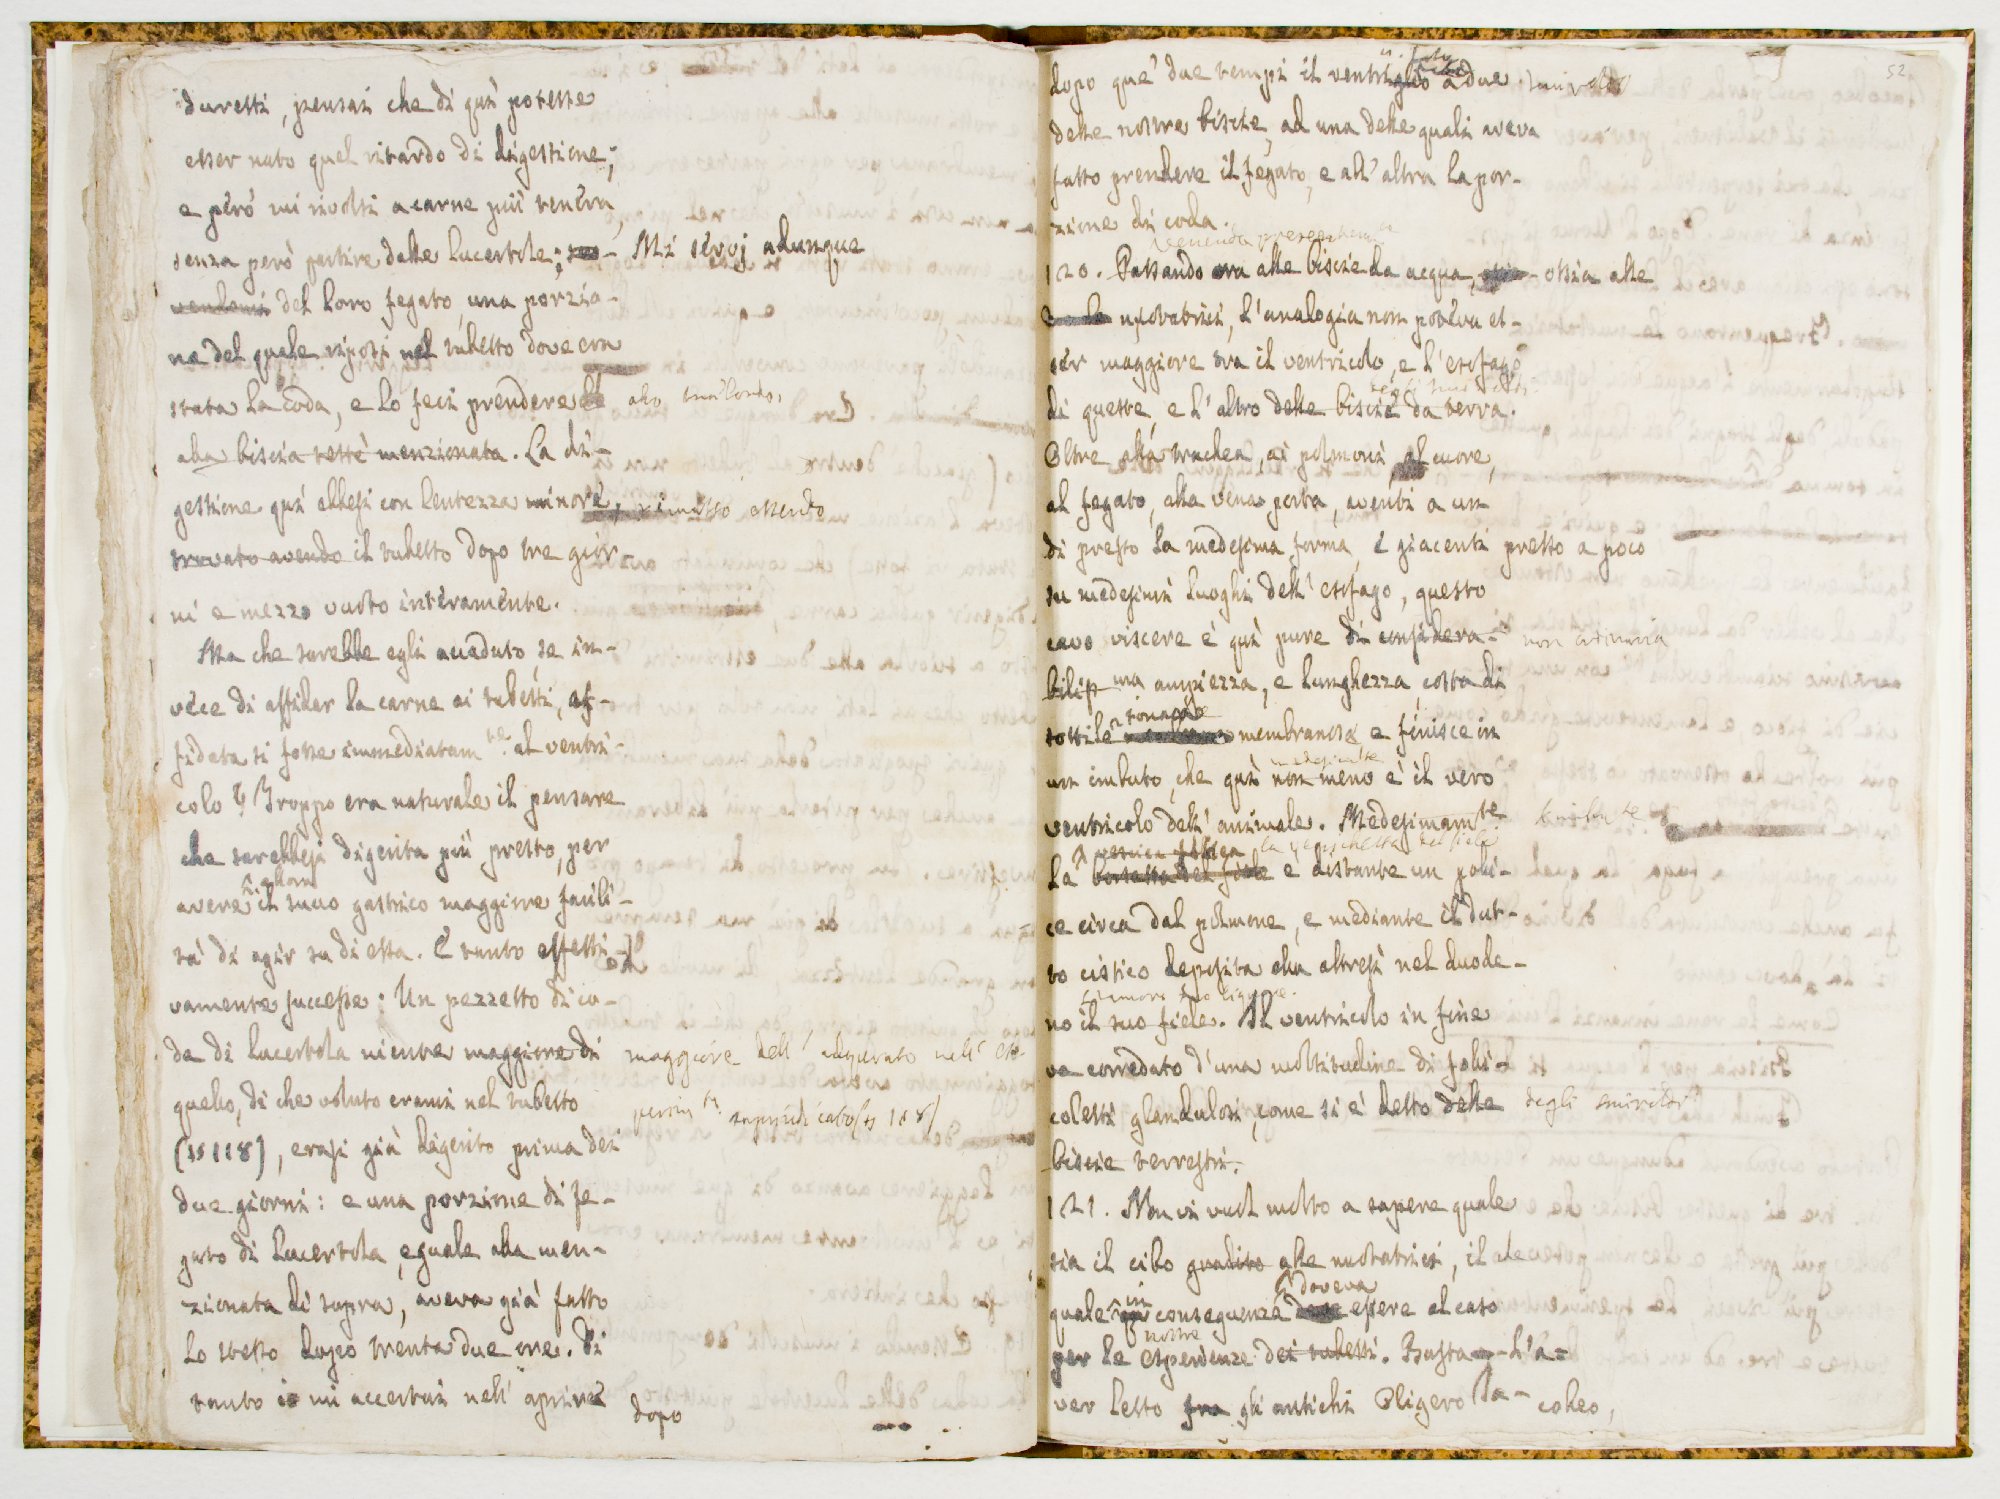 duretti, pensai che di quì potesse
esser nato quel ritardo di digestione;
e però mi rivolsi a carne più tenera,
senza però partire dalle lucertole; Mi servoj adunque
vendomi del loro fegato, una porzio-
ne del quale riposi nel tubetto dove era
stata la coda, e lo feci prendere allo smiraldo,
alla biscia testè menzionata. La di-
gestione quì ebbesi con lentezza minore, rimasto essendo
trovato avendo il tubetto dopo tre gior-
ni e mezzo vuoto interamente.
Ma che sarebbe egli accaduto, se in-
vece di affidar la carne ai tubetti, af-
fidata si fosse immediatam.te al ventri-
colo? Troppo era naturale il pensare
che sarebbesi digerita più presto, per
allora
avere il succo gastrico maggiore facili-
tà di agir su di essa. E tanto effetti-
vamente successe: Un pezzetto di co-
da di lucertola niente maggiore di maggiore dell' adoperato nell' espe-
quello, di che valuto erami nel tubetto
perim.to supindicato (§ 118)
(§ 118), erasi già digerito prima dei
due giorni: e una porzione di fe-
gato di lucertola, eguale alla men-
zionata di sopra, aveva già fatto
lo stesso dopo trenta due ore. Di
tanto io mi accertai nell' aprire
dopo
52
dopo que' due tempi il ventriglio a due
delle nostre biscie, ad una delle quali aveva
fatto prendere il fegato, e all' altra la por-
zione di coda.
Venendo presentemente
120. Passando ora alle biscie da acqua, ossia alle
nuotatrici, l'analogia non poteva es-
ser maggiore tra il ventricolo, e l'esofago
di queste, e l'altro delle biscie da terra.
Oltre alla trachea, ai polmoni, al cuore,
al fegato, alla vena porta, aventi a un
di presso la medesima forma, e giacenti presso a poco
su medesimi luoghi dell' esofago, questo
cavo viscere è quì pure di considera- non ordinaria
bilis.ma ampiezza, e lunghezza, consta di
tonaca
sottile membranosa e finisce in
medesimamente
un imbuto, che quì non meno è il vero
ventricolo dell' animale. Medesimam.te
la vescica fellea la vescichetta del fiele
La borsetta del fiele è distante un polli-
ce circa dal polmone, e mediante il dut-
to cistico deposita ella altresì nel duode-
l'amaro suo liquore.
no il suo fiele. Il ventricolo in fine
va corredato d'una moltitudine di folli-
coletti glandulosi, come si è detto delle degli smiraldi
biscie terrestri.
121. Non vi vuol molto a sapere quale
sia il cibo gradito alle nuotatrici, il che
in doveva
quale per conseguenza deve essere al caso
nostre
per le esperienze dei tubetti. Basta l'a-
ver letto fra gli antichi Oligero Ja- cobeo,